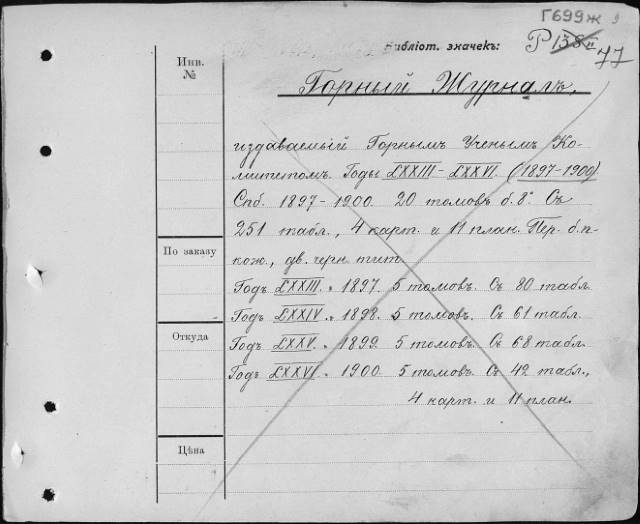 Г699ж
Библіот. значекъ: Р 138 II
77
Инв.
№
Горный Журналъ,
издаваемый Горнымъ Ученымъ Ко-
митетомъ. Годы LXXIII - LXXVI. (1897-1900)
Спб. 1897-1900. 20 томовъ б. 8°. Съ
251 табл., 4 карт. и 11 план. Пер. б. п
кож., дв. черн. тит.
По заказу
Годъ LXXIII. „ 1897. 5 томовъ. Съ 80 табл.
Годъ LXXIV. „ 1898. 5 томовъ. Съ 61 табл.
Откуда
Годъ LXXV. „ 1899. 5 томовъ. Съ 68 табл.
Годъ LXXVI. „ 1900. 5 томовъ. Съ 42 табл.,
4 карт. и 11 план.
Цѣна